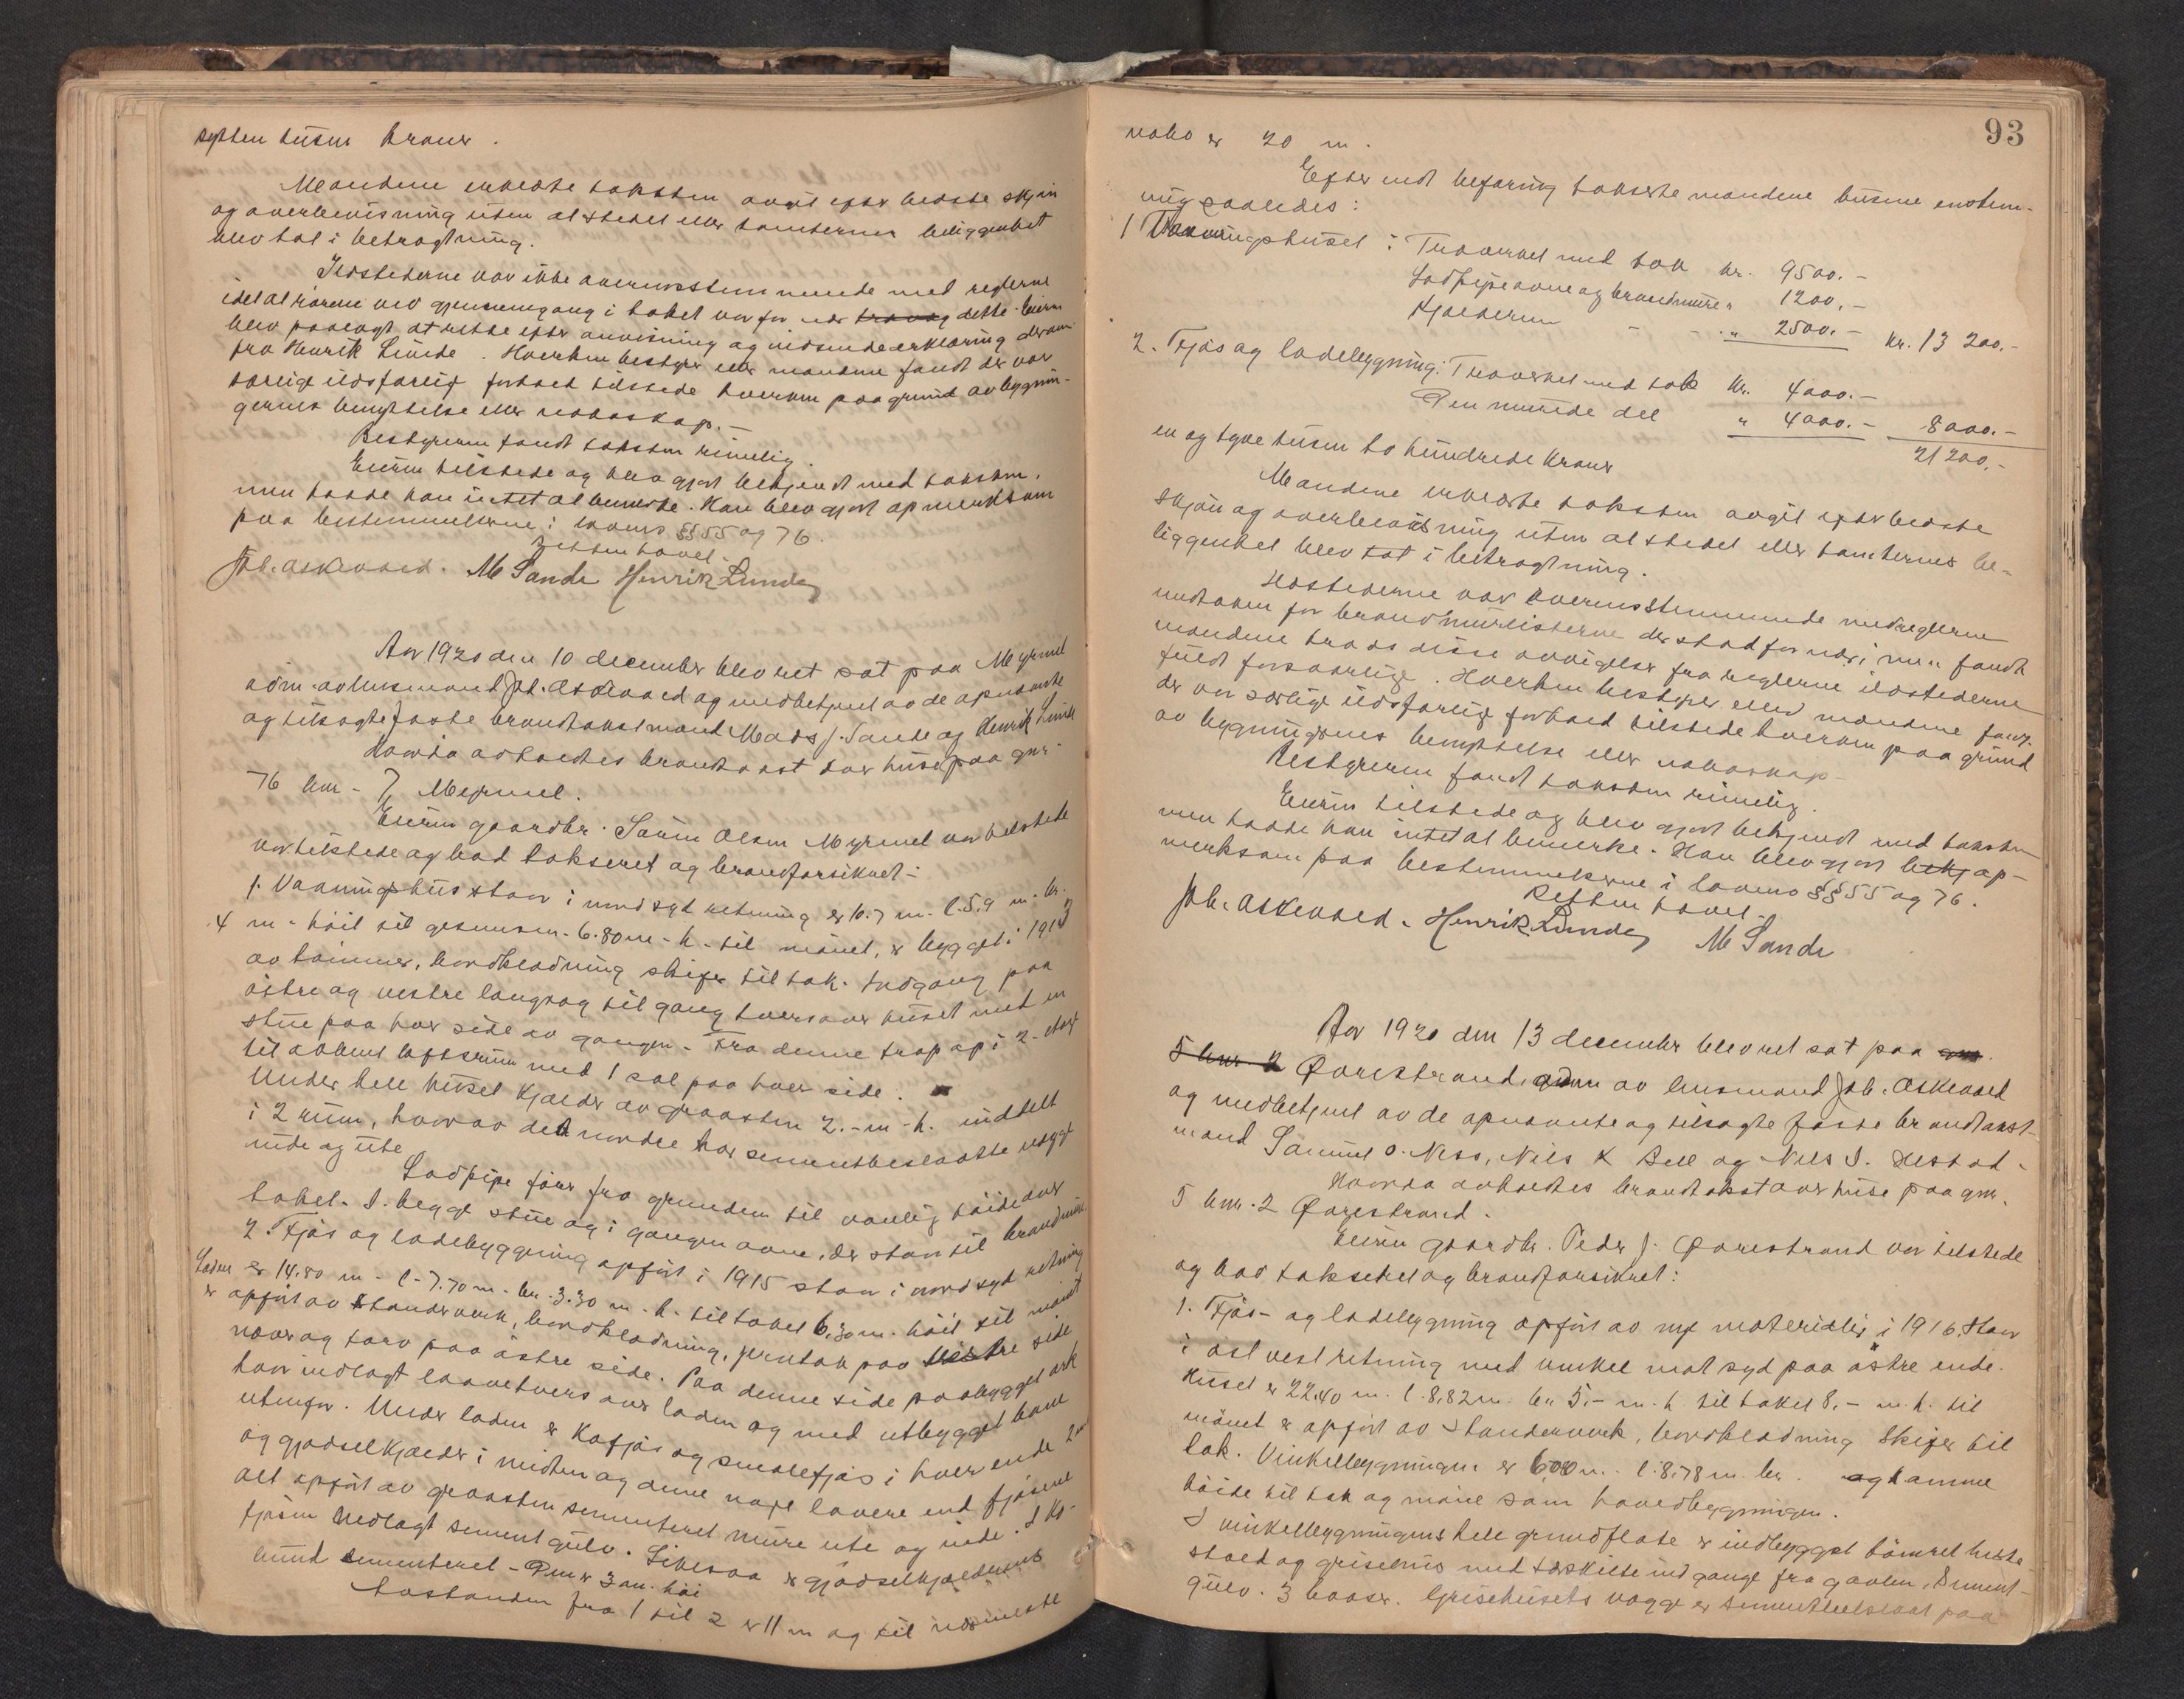 sytten tusen kroner.
Mændene erklærte taksten avgit efter bedste skjön
og overbevisning uten at stedet eller tomternes beliggenhet
blev tat i betragtning.
Ildstederne var ikke overensstemmende med reglerne
idet at rörene ved gjennemgang i taket var for nær dette. Eieren
blev paalagt at rette efter anvisning og indsende erklæring derom
fra Henrik Lunde. Hverken bestyrer eller mændene fandt der var
særlige ildsfarlig forhold tilstede hverken paa grund av bygnin-
gernes benyttelse eller naboskap.-
Bestyreren fandt taksten rimelig.
Eieren tilstede og blev gjort bekjendt med taksten,
men hadde han intet at bemerke. Han blev gjort opmerksom
paa bestemmelserne i lovens §§ 55 og 76.
Retten hævet.
Joh. Askevold. M Sande Henrik Lunde
Aar 1920 den 10 december blev ret sat paa Myrmel
adm. av lensmand Joh. Askevold og medbetjent av de opnævnte
og tilsagte faste brandtakstmænd Mads J. Sande og Henrik Lunde
Hvorda avholdtes brandtakst over huse paa gnr.
76 bnr. 7 Myrmel.
Eieren gaardbr. Sörin Olsen Myrmel var tilstede
var tilstede og bad takseret og brandforsikret-
1. Vaaningshus staar i nord syd retning er 10.7 m. l. 5.9 m. br.
4 m. höit til gesimsen. 6.80 m. h. til mönet, er bygget i 1913
av tömmer, bordklædning skifer til tak. Indgang paa
östre og vestre langvæg til gang tversover huset med en
stue paa hver side av gangen. Fra denne trap op i 2. etage
til aapent loftsrum med 1 sal paa hver side.
Under hele huset kjælder av graasten 2.- m. h. inddelt
i 2 rum, hvorav det nordre har sementbeslaatte vægge
inde og ute
Lodpipe förer fra grunden til vanlig höide over
taket. I begge stuer og i gangen ovne, der staar til brandmur
2. Fjös og ladebyggning opfört i 1915 staar i nord syd retning
Laden er 14.80 m. l. 7.70 m. br. 3.30 m. h. til taket 6,30 m. höit til mönet
er opfört av standerverk, bordklædning, jerntak paa vestre side
næver og torv paa östre side. Paa denne side paabygget ark
har indlagt laavetvers over laden og med utbygget bane
utenfor. Under laden er kofjös og smalefjös i hver ende
og gjödselkjælder i midten og denne noget lavere end fjösene
alt opfört av graasten sementeret mure ute og inde. I ko-
fjösen nedlagt sementgulv. Likesaa er gjödselkjælderens
bund sementeret. Den er 3 m. höi
Avstanden fra 1 til 2 er 11 m og til nærmeste
93
nabo er 20 m.
Efter endt befaring takserte mændene husene enstem-
mig saaledes:
1 Vaaningshuset: Træverket med tak kr. 9500.-
Lodpipe ovne og brandmure " 1200.-
Kjælderen - - " 2500.- kr. 13 200.-
2. Fjös og ladebygning: Træverket med tak kr. 4000.-
Den murede del " 4000.- 8000.-
21 200.-
en og tyve tusen to hundrede kroner
Mændene erklærte taksten avgit efter bedste
skjön og overbevisning uten at stedet eller tomternes be-
liggenhet blev tat i betragtning.
Ildstederne var overensstemmende med reglerne
undtagen for brandmurlisterne der stod for nær, men fandt
mændene tross disse avvigelser fra reglerne ildstederne
fuldt forsvarlige. Hverken bestyrer eller mændene fandt
der var særlige ildsfarlig forhold tilstede hverken paa grund
av bygningernes benyttelse eller naboskap
Bestyreren fandt taksten rimelig.
Eieren tilstede og blev gjort bekjendt med taksten
men hadde han intet at bemerke. Han blev gjort bekj op-
merksom paa bestemmelserne i lovens §§ 55 og 76.
Retten hævet.
Joh. Askevold. Henrik Lunde M Sande
Aar 1920 den 13 december blev ret sat paa gnr.
5 bnr 2 Övrestrand, adm av lensmand Joh. Askevold
og medbetjent av de opnævnte og tilsagte faste brandtakst-
mænd Samuel O. Ness, Nils K Bell og Nils S. Hestad.
Hvorda avholdtes brandtakst over huse paa gnr.
5 bnr. 2 Övrestrand.
Eieren gaardbr. Peder J. Övrestrand var tilstede
og bad takseret og brandforsikret:
1. Fjös- og ladebygning opfört av nye materialer i 1916. Staar
i öst vest retning med vinkel mot syd paa östre ende.
Huset er 22.40 m. l. 8,82 m. br. 5,- m. h. til taket 8,- m. h. til
mönet er opfört av standerverk, bordklædning skifer til
tak. Vinkelbygningen er 6,00 m. l. 8,78 m. br. og samme
höide til tak og möne som hovedbygningen.
I vinkelbygningens hele grundflate er indbygget tömret heste
stald og grisehus med særskilte indgange fra gavlen, sement-
gulv. 3 baaser. Grisehusets vægge er sementbeslaat paa